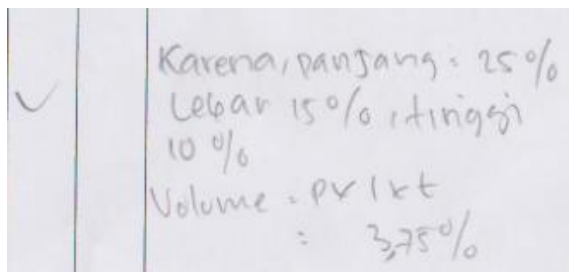 Karena, panjang = 25%
Lebar 15%, tinggi
10%
Volume = p x l x t
= 3,75%